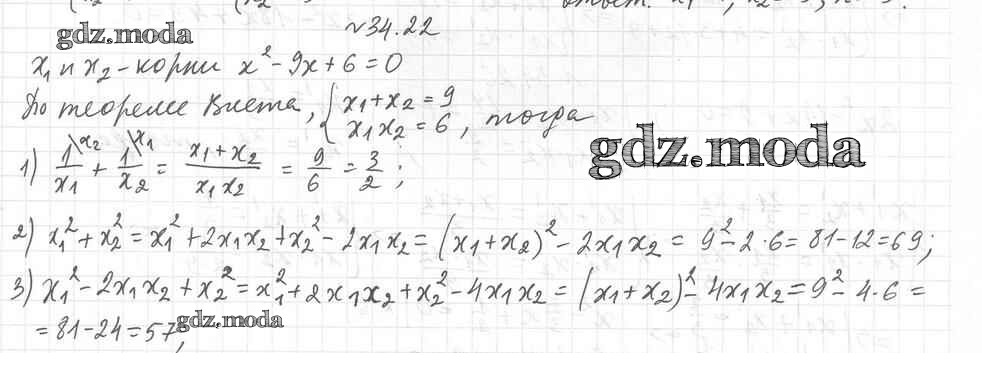 ответ:
№34.22
gdz.moda
x₁ и x₂ – корни x² - 9x + 6 = 0
По теореме Виета, { x₁ + x₂ = 9
x₁x₂ = 6 , тогда
gdz.moda
1) 1\x₂ / x₁ + 1\x₁ / x₂ = (x₁ + x₂) / (x₁ x₂) = 9/6 = 3/2 ;
2) x₁² + x₂² = x₁² + 2x₁x₂ + x₂² - 2x₁x₂ = (x₁ + x₂)² - 2x₁x₂ = 9² - 2·6 = 81 - 12 = 69;
3) x₁² - 2x₁x₂ + x₂² = x₁² + 2x₁x₂ + x₂² - 4x₁x₂ = (x₁ + x₂)² - 4x₁x₂ = 9² - 4·6 =
= 81 - 24 = 57;
gdz.moda